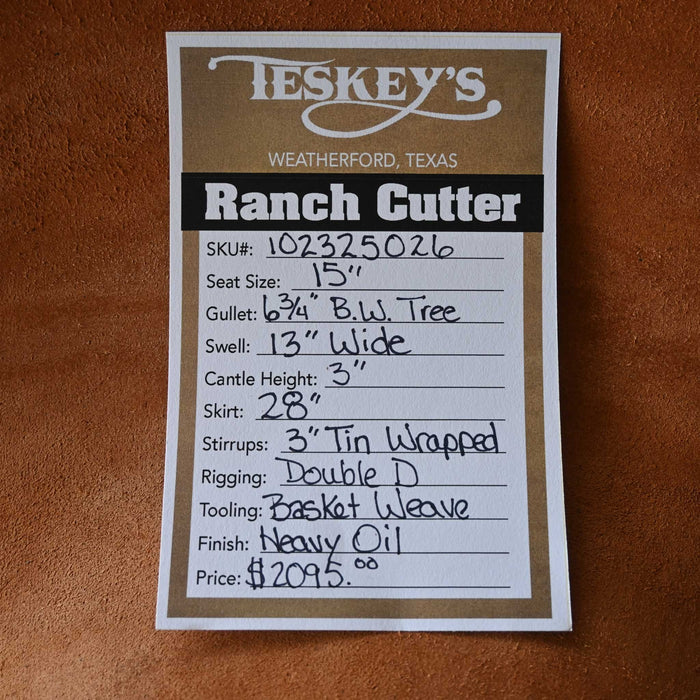 TESKEY'S
WEATHERFORD, TEXAS
Ranch Cutter
SKU#: 102325026
Seat Size: 15"
Gullet: 6 3/4" B.W. Tree
Swell: 13" Wide
Cantle Height: 3"
Skirt: 28"
Stirrups: 3" Tin Wrapped
Rigging: Double D
Tooling: Basket Weave
Finish: Heavy Oil
Price: $2095.00